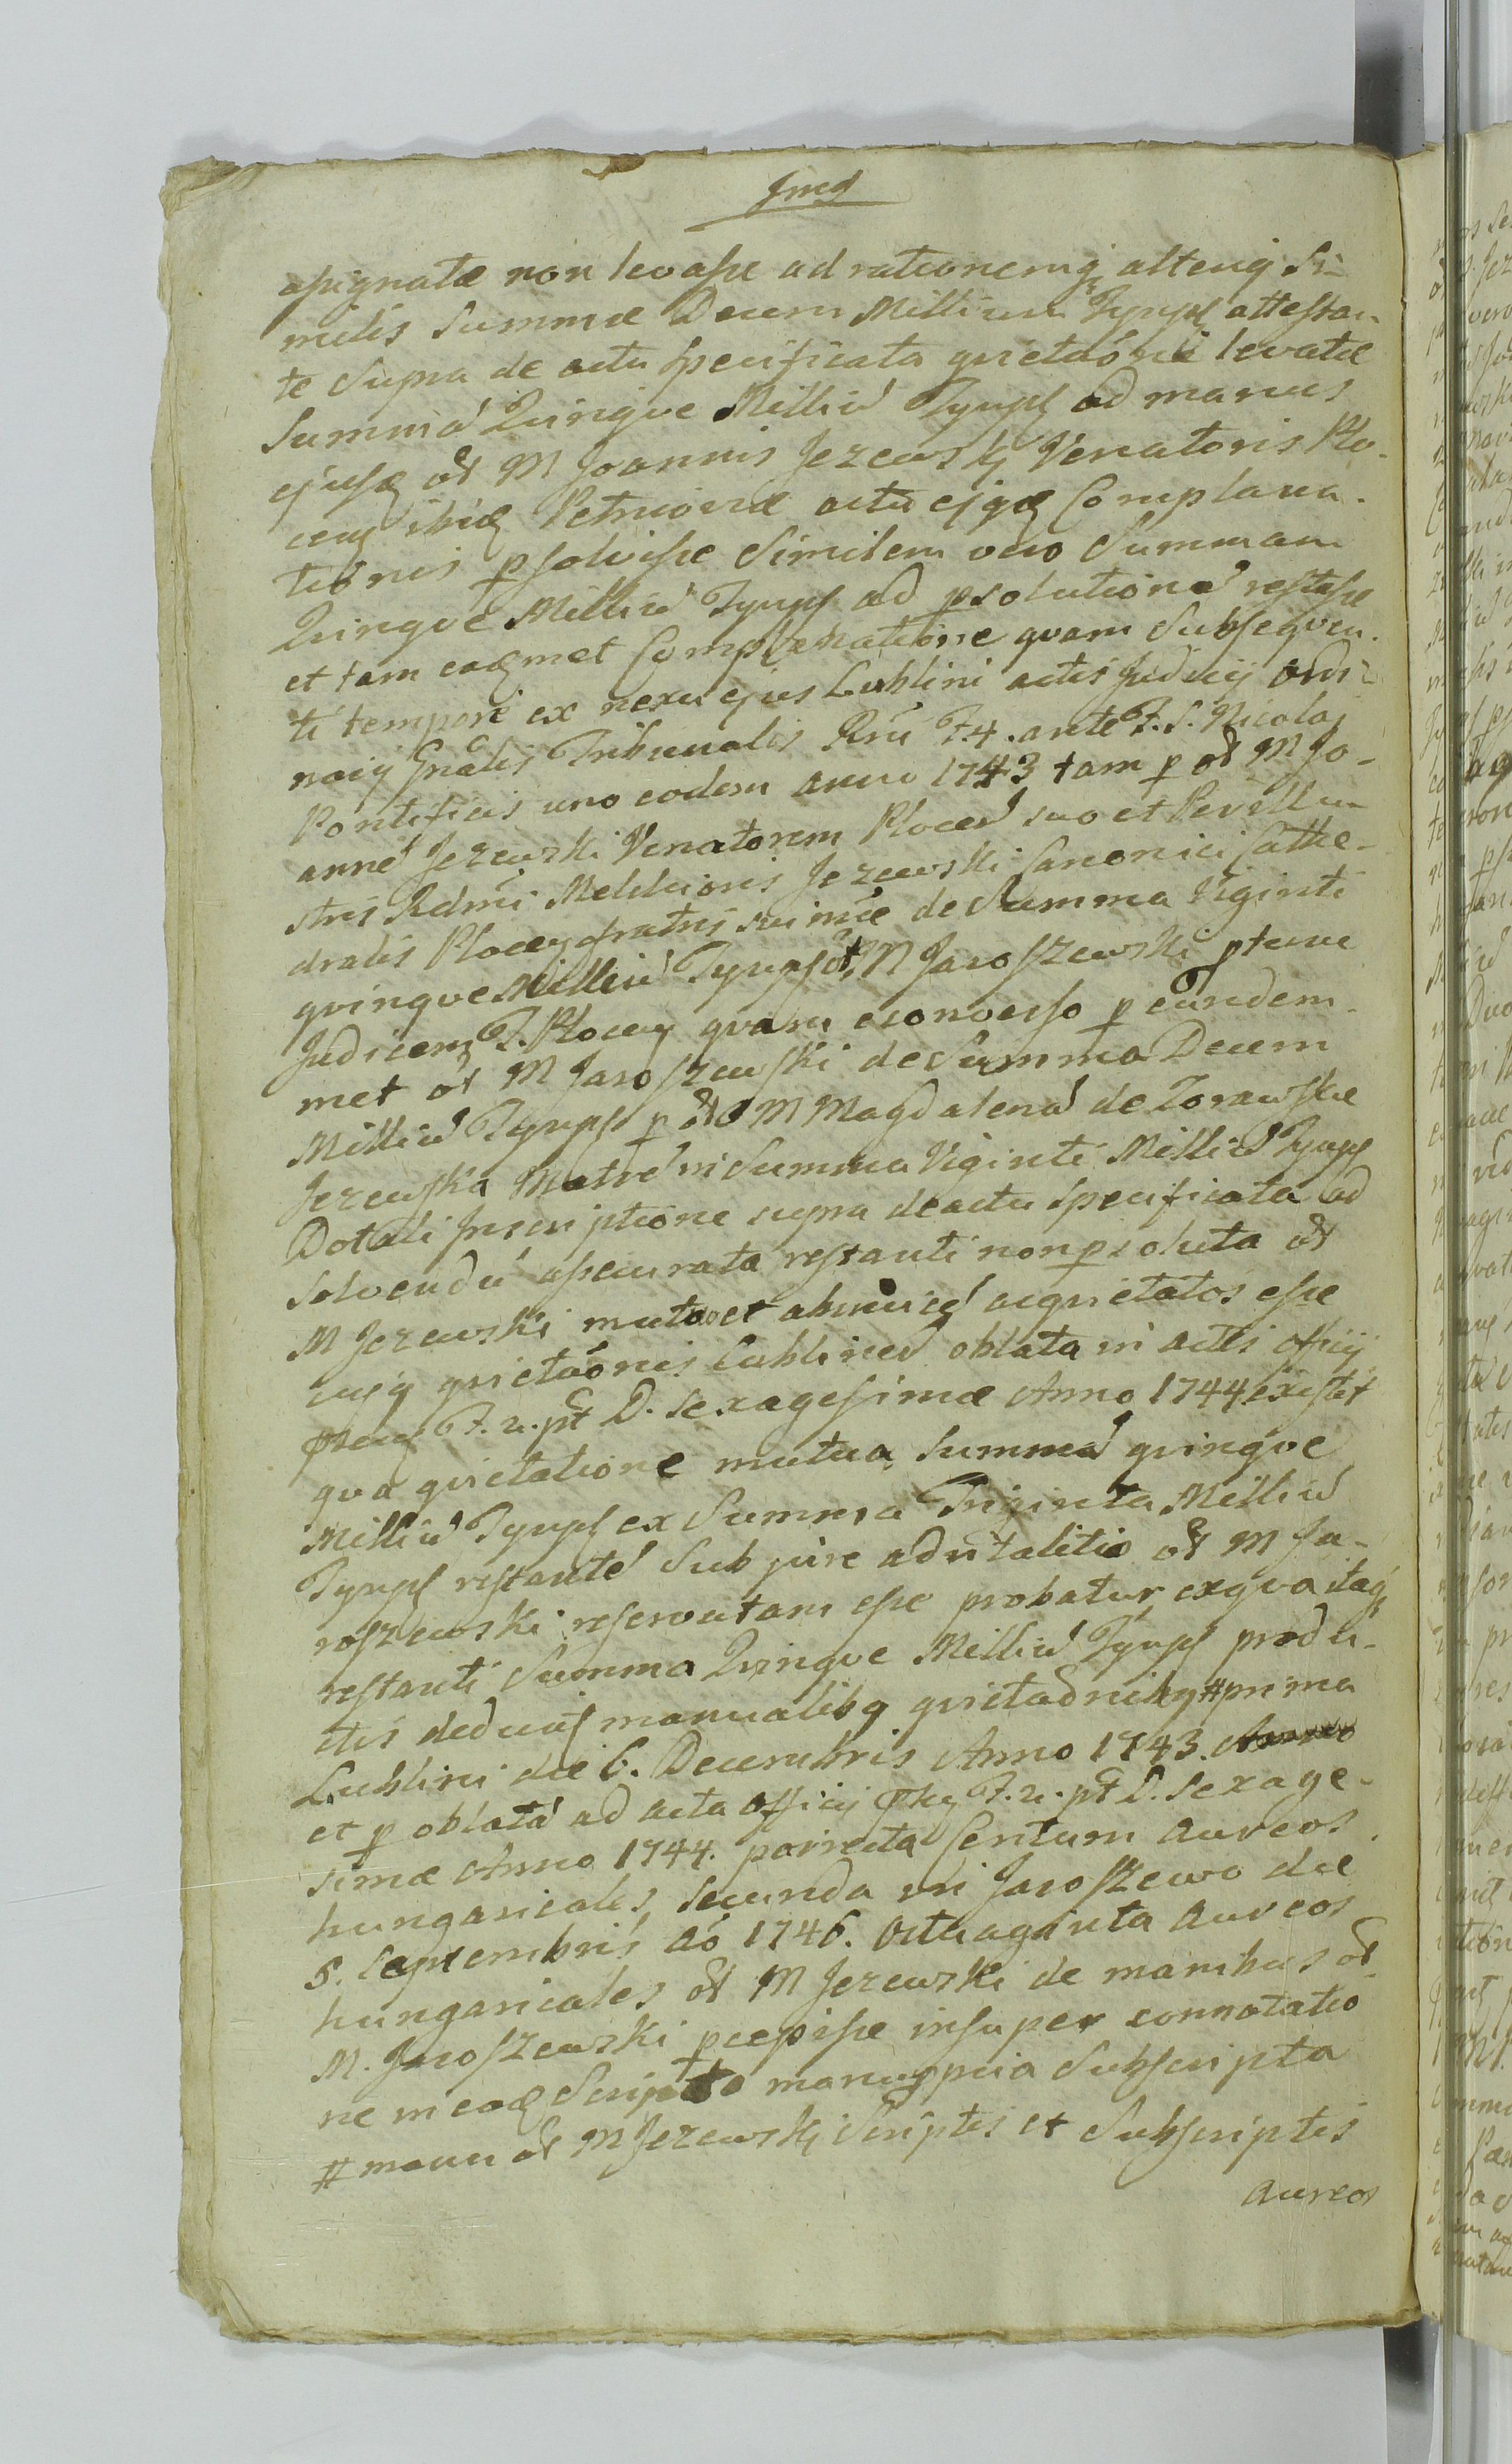 assignatæ non levasse ad rationemq alteriq Si-
milis Summæ Decem Millium Tynph attestan-
te Supra de actu specificata quietaõne levatæ
Summã Quinque Milliũ Tynph ad manus
ejusd ol M Joannis Jezewskj Venatoris Plo-
cen ibid Petricoviæ actu ejqd Complana-
tiõnis psolvisse Similem vero Summam
Quinque Milliũ Tynph ad psolutionẽ restasse
et tam eadmet Complanatione quam Subsequen-
ti tempore ex nexu ejus Lublini actis Judicij Ordi-
narij Gñalis Tribunalis Rni F. 4. ante F. S. Nicolaj
Pontificis uno eodem anno 1743 tam p ol M Jo-
annẽ Jezewski Venatorem Plocen suo et Perillu-
stris Rdmi Melchioris Jezewski Canonici Cathe-
dralis Plocen fratris sui nõie de Summa Viginti
quinque Milliũ Tynph ol M Jaroszewski ptunc
Judicem T. Plocen quam econverso p eundem
met ol M Jaroszewski de Summa Decem
Milliũ Tynph p ol M Magdalenã de Zorawskie
Jezewska Matrẽ in Summa Viginti Milliũ Tynph
Dotali Inscriptione supra de actu specificata ad
solvendũ assecurata restanti non psoluta ol
M Jezewski mutuo et abinvicẽ acquietatos esse
cujq quietaõnis Lublinen oblata in actis officij
F. 2. pt D. Sexagesimæ Anno 1744 existit
qua quietatione mutua Summã quinque
Milliũ Tynph ex Summa Triginta Milliũ
Tynph restantẽ Sub jure advitalitio ol M Ja-
roszewski reservatam esse probatur, ex qua itaq
restanti Summa Quinque Milliũ Tynph produ-
ctis deducts manualibq quietaõnibq # prima
Lublini die 6. Decembris Anno 1743.
et p oblatã ad acta officij F. 2. pt D. Sexage-
simæ Anno 1744. porrecta Centum Aureos
hungaricales, secunda in Jaroszewo die
5. Septembris Aõ 1746. Octuaginta Aureos
hungaricales ol M Jezewski de manibus ol
M. Jaroszewski pcepisse insuper connotatio
ne in eod Scripto manuppria Subscripta
# manu ol M Jezewskj Scriptis et Subscriptis
Aureos